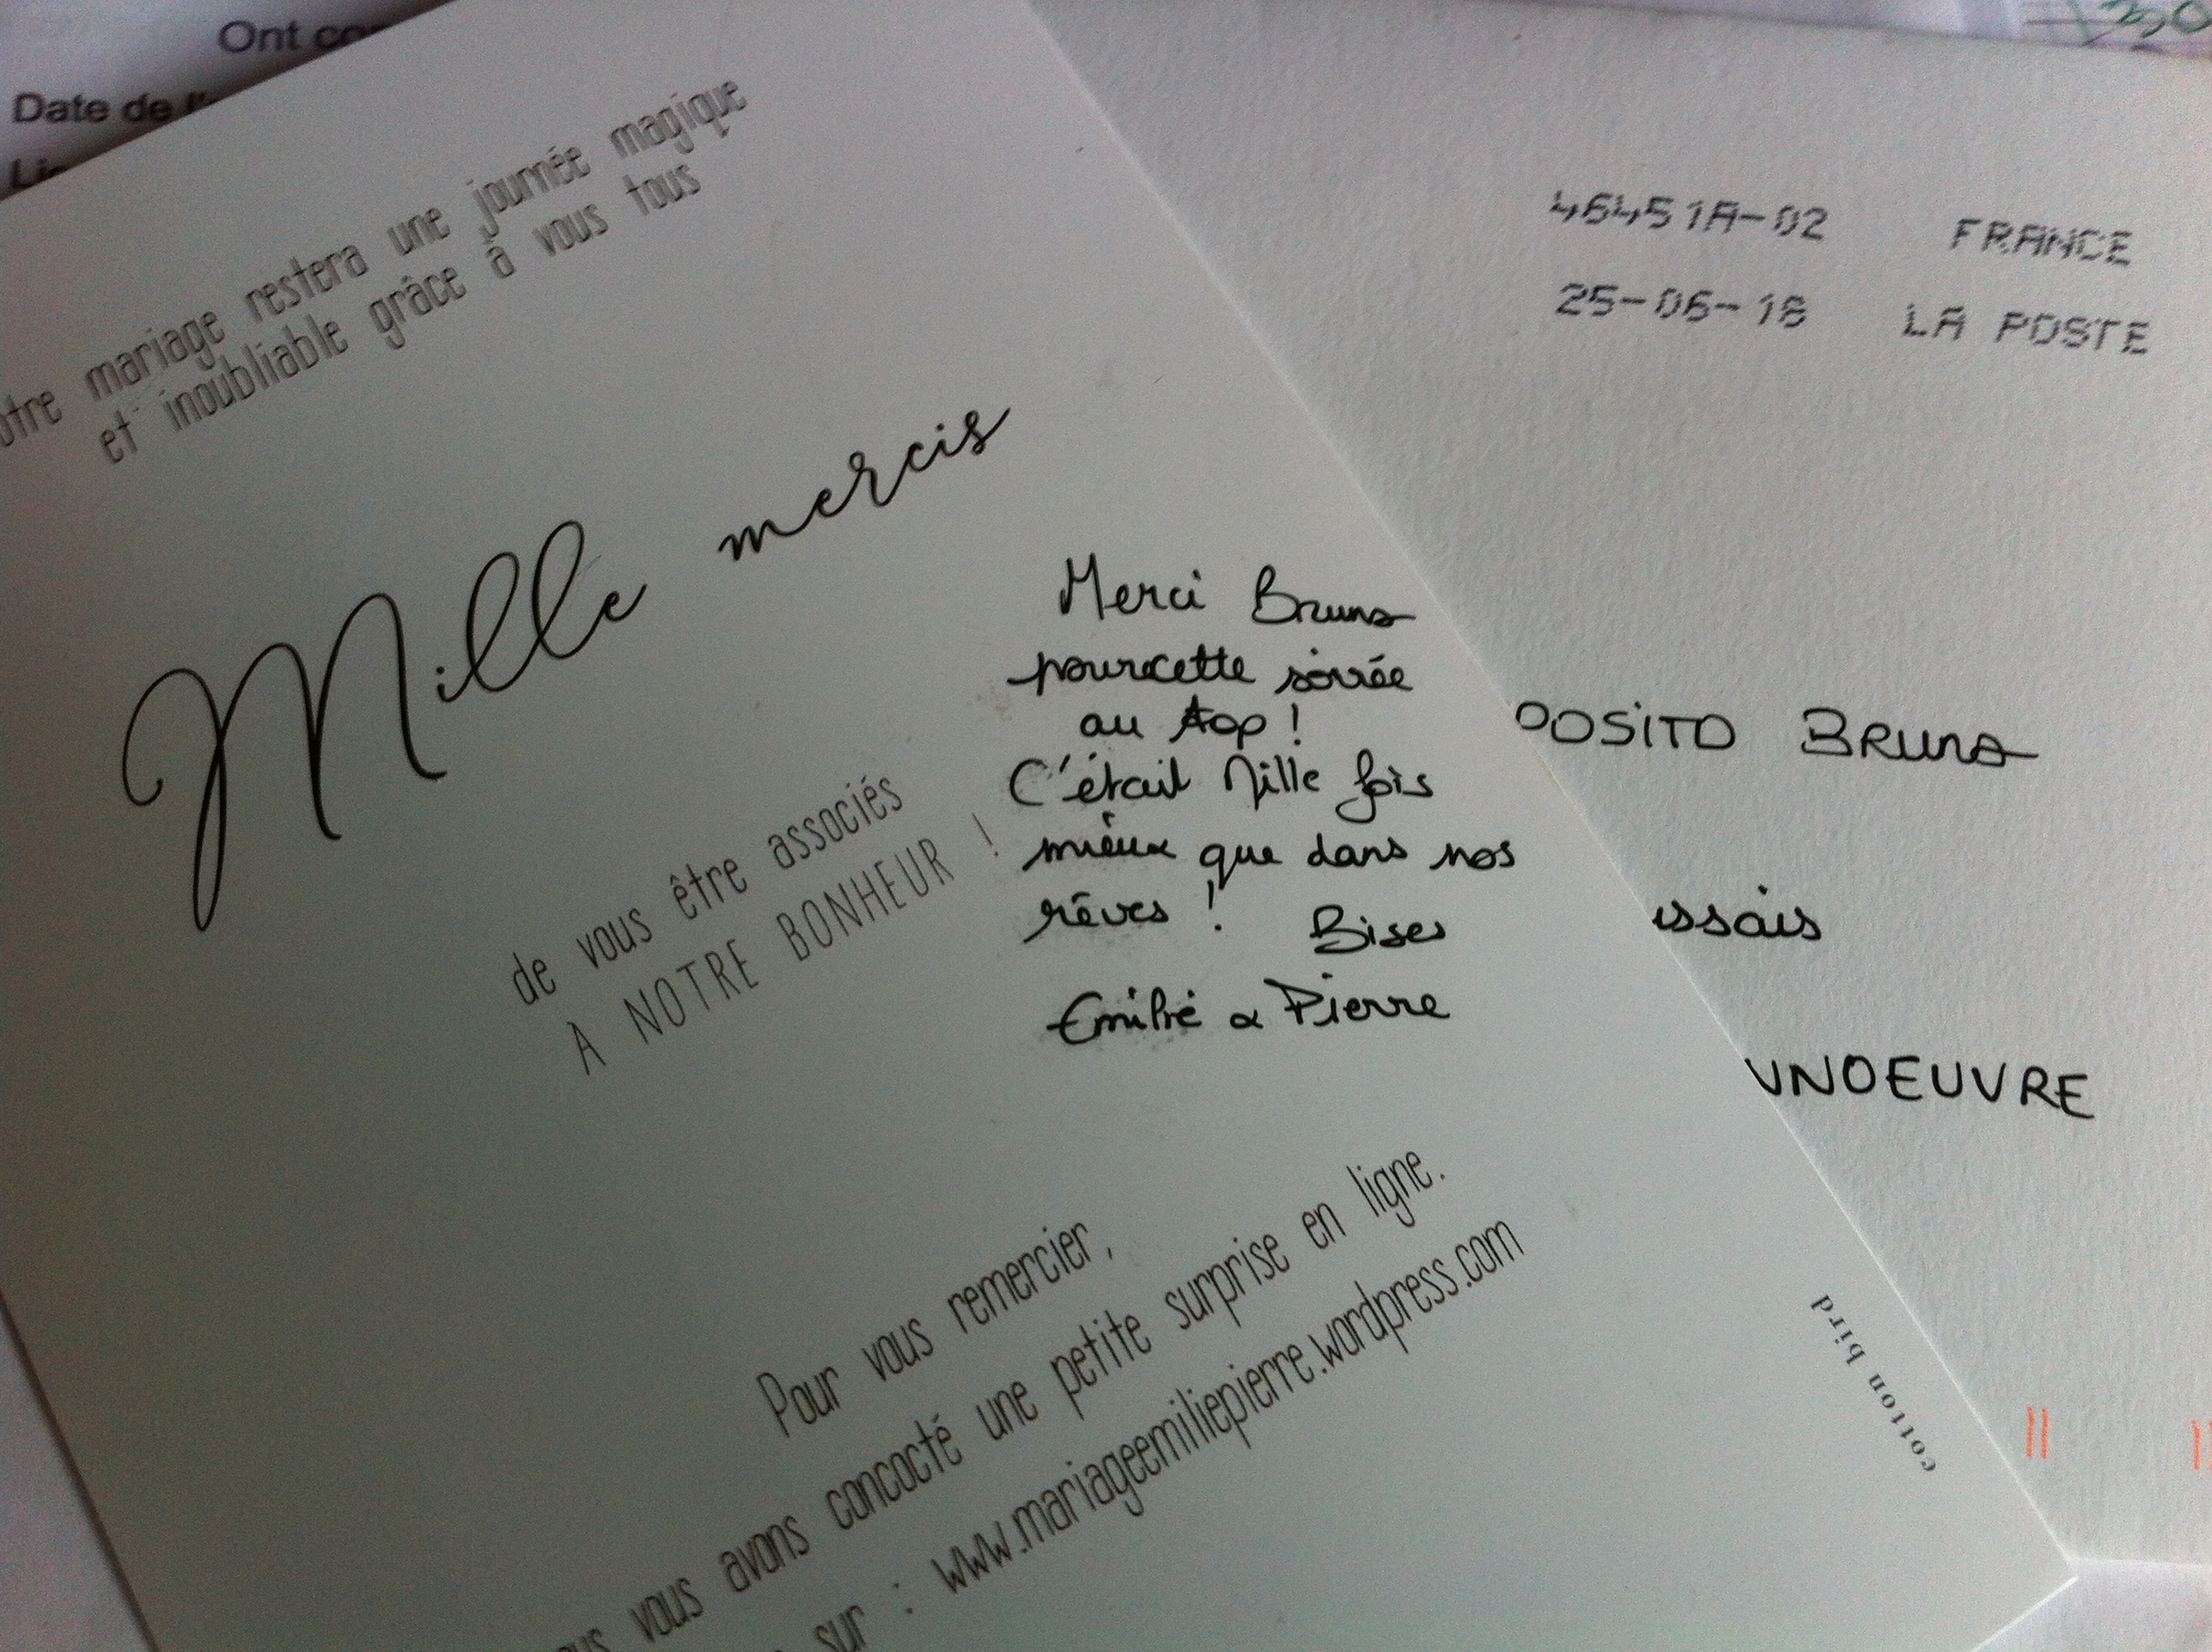 Ont
Date de
otre mariage restera une journée magique
et inoubliable grâce à vous tous
Mille mercis
de vous être associés
À NOTRE BONHEUR !
Merci Bruno
pour cette soirée
au top !
C'était Mille fois
mieux que dans nos
rêves ! Bises
Emilie & Pierre
Pour vous remercier,
vous avons concocté une petite surprise en ligne.
sur : www.mariageemiliepierre.wordpress.com
cotton bird
46451A-02 FRANCE
25-06-18 LA POSTE
POSITO BRUNO
ssais
UNOEUVRE